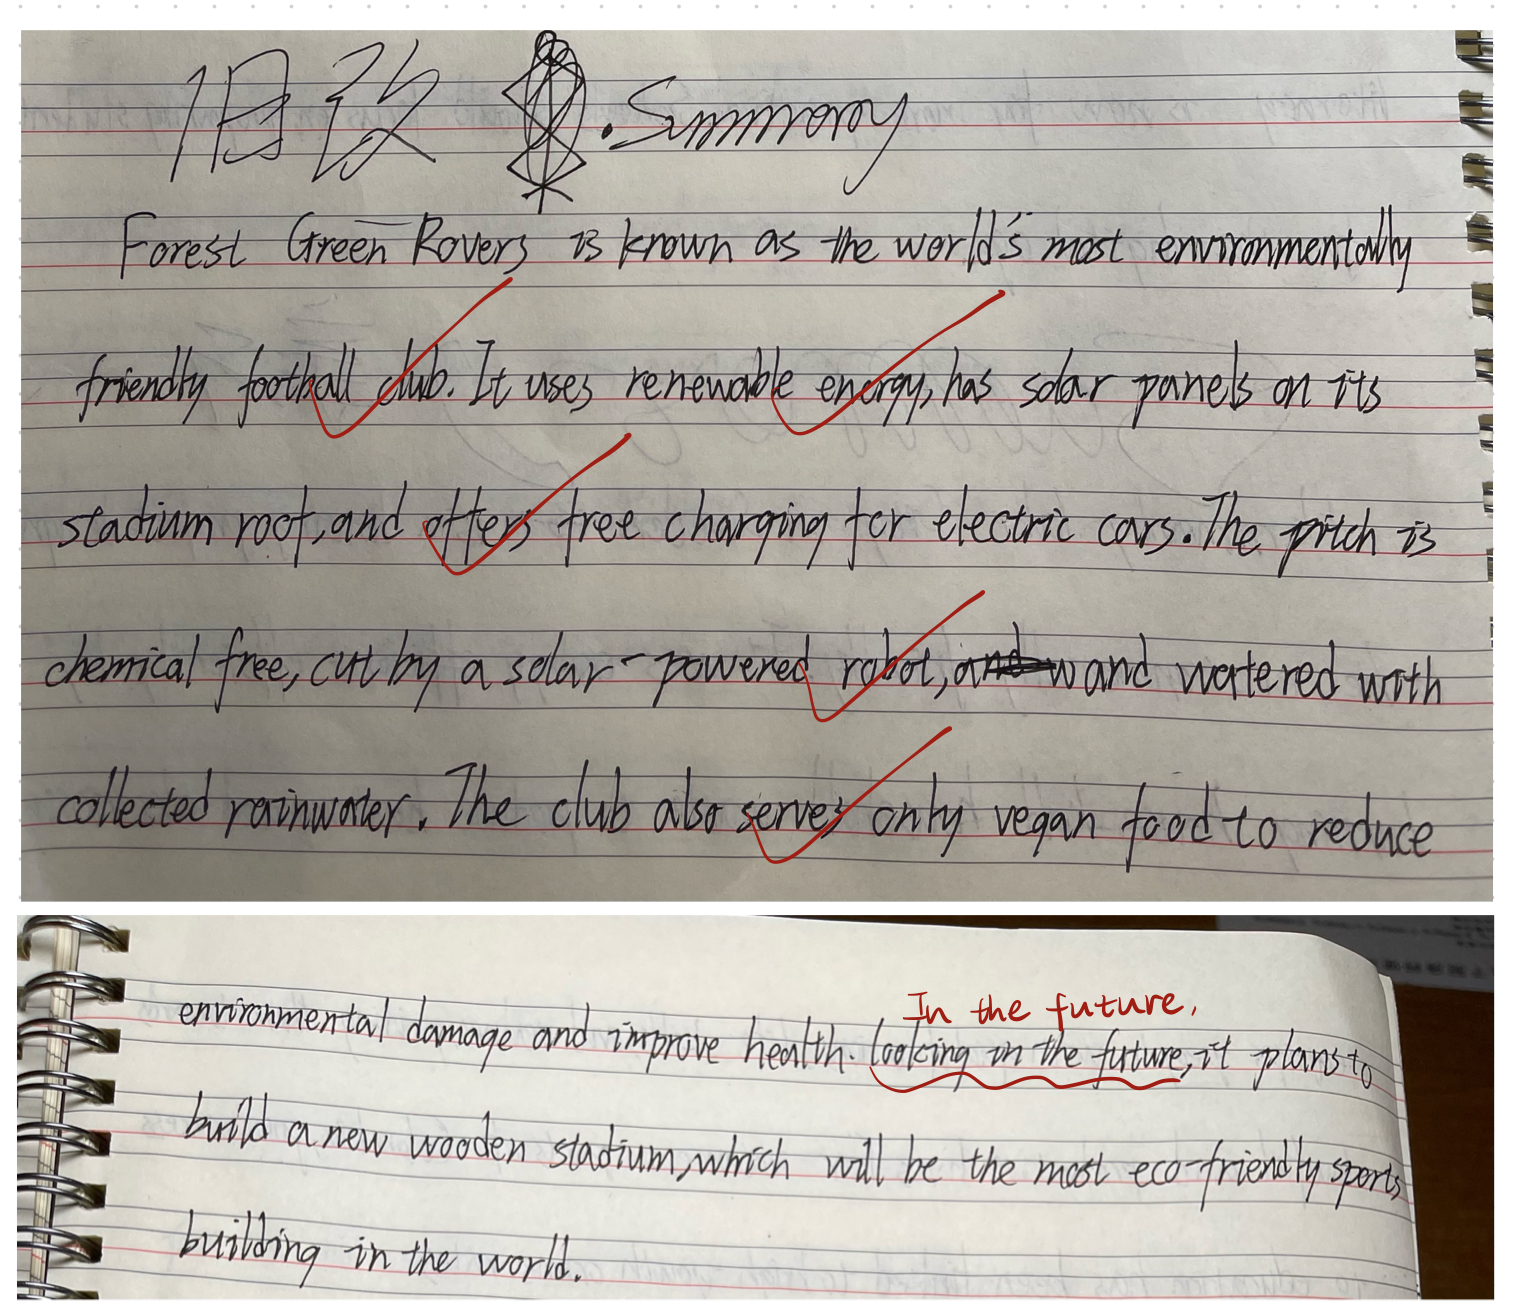 旧改 . Summary
Forest Green Rovers is known as the world's most environmentally
friendly football club. It uses renewable energy, has solar panels on its
stadium roof, and offers free charging for electric cars. The pitch is
chemical free, cut by a solar-powered robot, and watered with
collected rainwater. The club also serves only vegan food to reduce
In the future,
environmental damage and improve health. looking in the future, it plans to
build a new wooden stadium, which will be the most eco-friendly sports
building in the world.